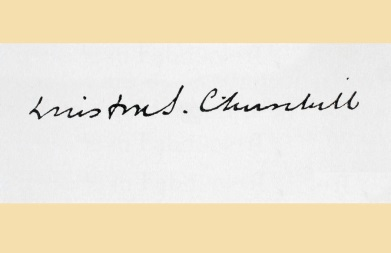 Winston S. Churchill